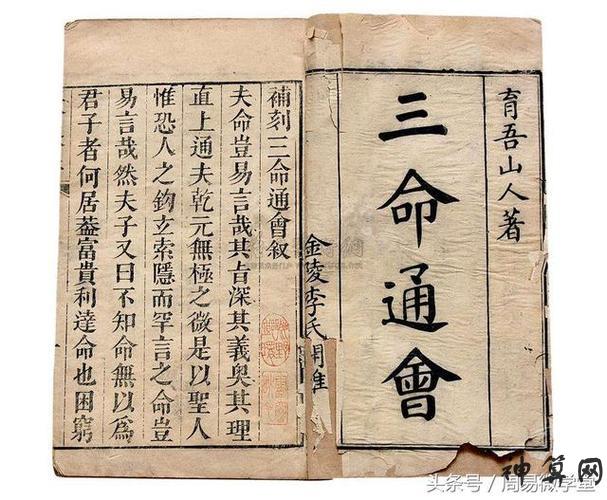 育吾山人著
三命通會
金陵李氏
補刻三命通會叙
夫命豈易言哉其旨深其義奥其理
直上通夫乾元無極之微是以聖人
惟恐人之鈎立索隱而罕言之命豈
易言哉然夫子又曰不知命無以為
君子者何居葢富貴利達命也困窮
头条号／周易微学堂
神算网